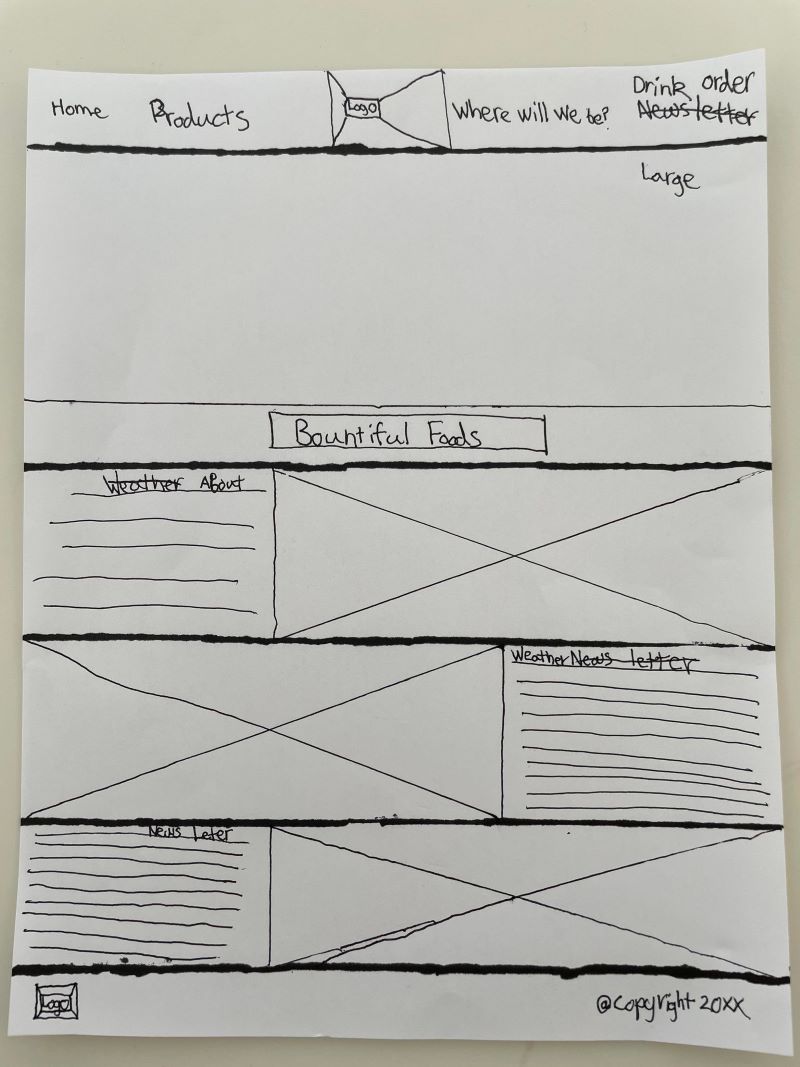 Home Products Logo Where will we be? Drink order
Newsletter
Large
Bountiful Foods
Weather About
Weather News letter
News Leter
Logo @copyright 20XX